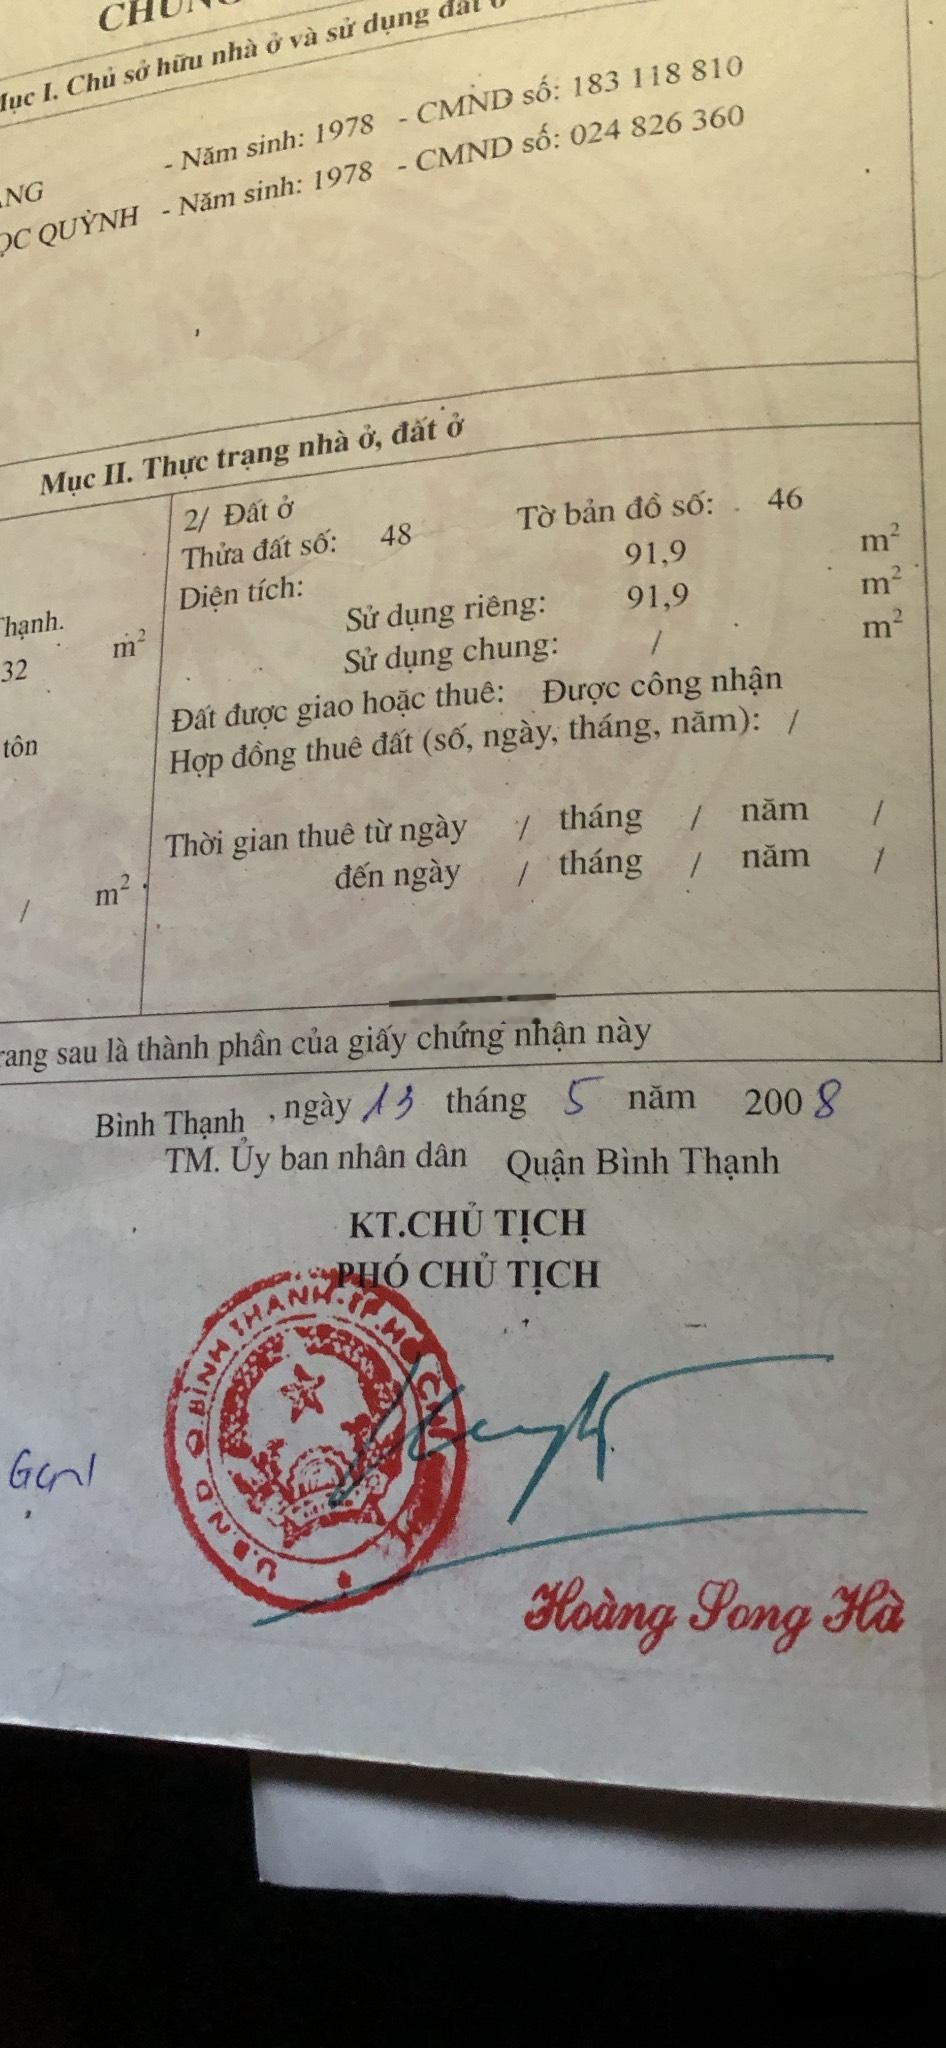 Mục I. Chủ sở hữu nhà ở và sử dụng đất ở
- Năm sinh: 1978 - CMND số: 183 118 810
QUỲNH - Năm sinh: 1978 - CMND số: 024 826 360
Mục II. Thực trạng nhà ở, đất ở
2/ Đất ở
Thửa đất số: 48 Tờ bản đồ số: 46
Diện tích: 91,9 m²
Sử dụng riêng: 91,9 m²
Sử dụng chung: / m²
Đất được giao hoặc thuê: Được công nhận
Hợp đồng thuê đất (số, ngày, tháng, năm): /
Thời gian thuê từ ngày / tháng / năm /
đến ngày / tháng / năm /
32 m²
tôn
/ m²
sau là thành phần của giấy chứng nhận này
Bình Thạnh, ngày 13 tháng 5 năm 2008
TM. Ủy ban nhân dân Quận Bình Thạnh
KT.CHỦ TỊCH
PHÓ CHỦ TỊCH
U.B.N.D Q.BÌNH THẠNH.TP.HỒ CHÍ MINH
Hoàng Song Hà